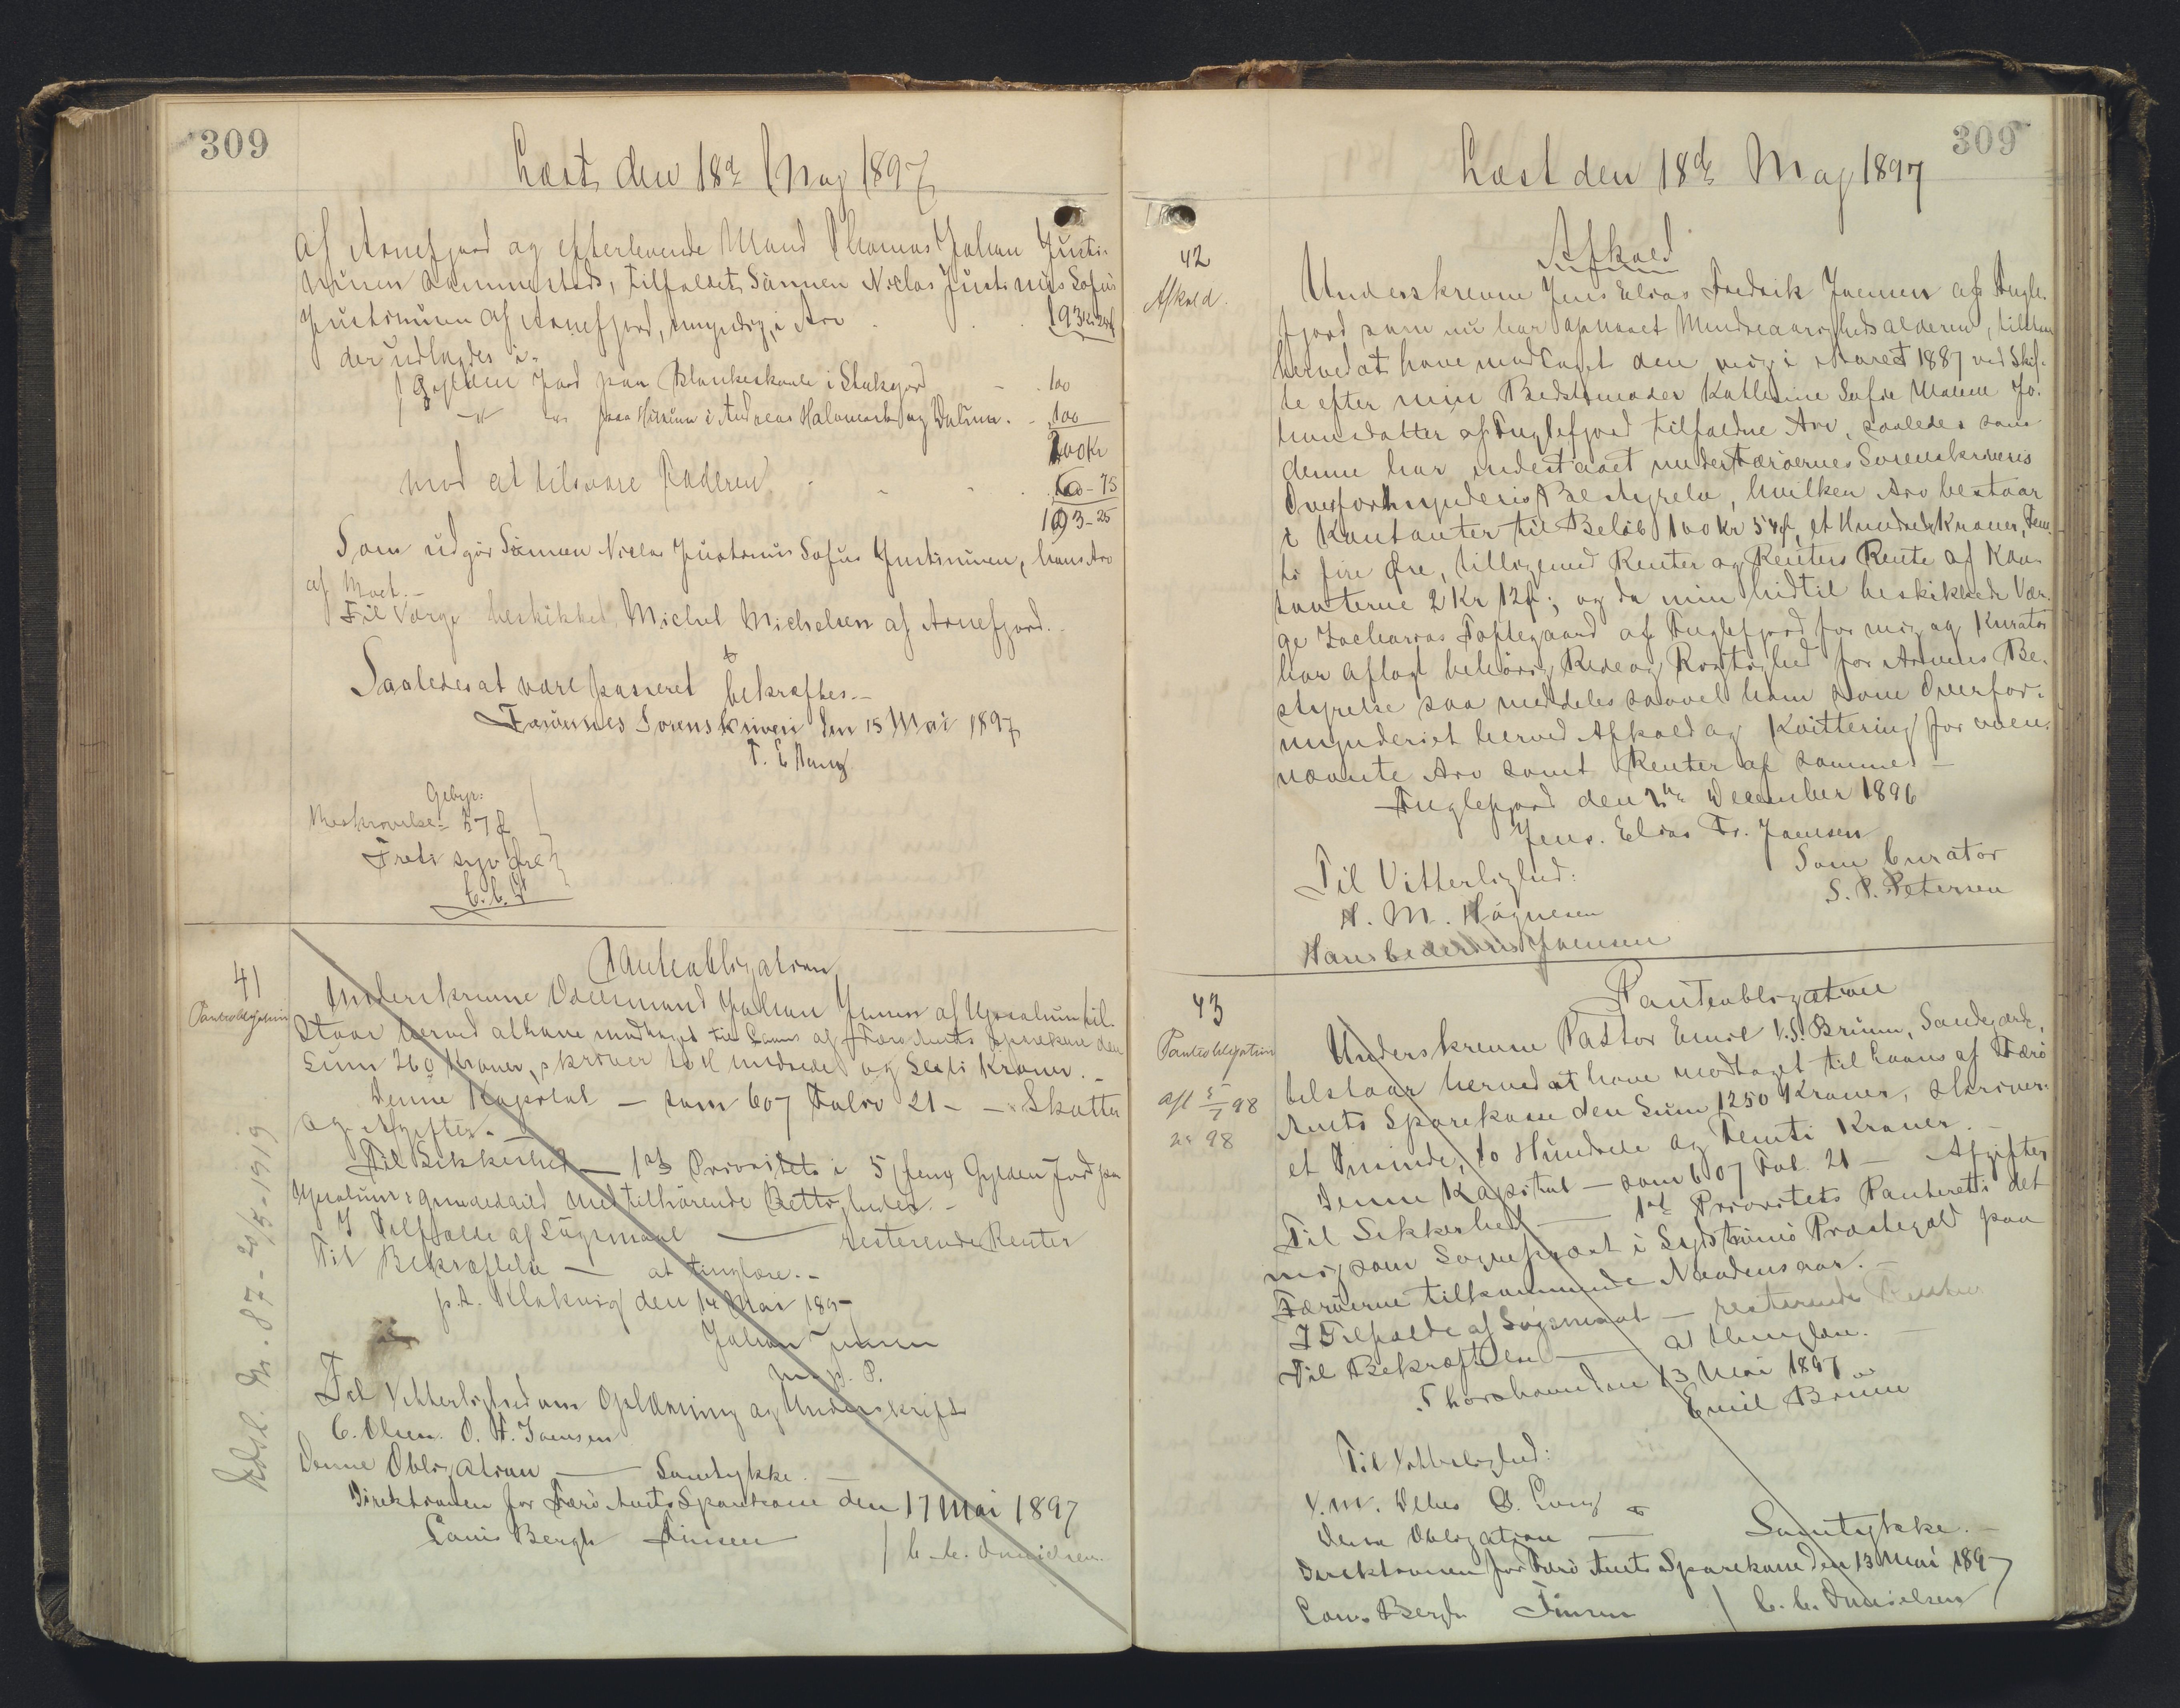 309
Læst den 18de May 1897
af Arnefjord og efterlevende Mand Thomas Johan Justi-
nussen sammesteds, tilfaldet Sönnen Niclas Justinus Sofus
Justinussen af Arnefjord, umyndig, i Arv 193 Kr 25
der udlagdes i
1 Gylden Jord paa Blankeskaale i 100
paa Húsum i Andreas og 100
200 Kr
mod at tilsvare Faderen 6-75
193-25
Som udgör Sönnen Niclas Justinus Sofus Justinussen, hans Arv
af Mod.-
Til Værge beskikket Michel Michelsen af Arnefjord.
Saaledes at være passeret bekræftes.-
Færöernes Sorenskriveri den 15 Mai 1897
Gebyr:
Beskrivelse 57
syv Øre
41
Panteobligation
Panteobligation
Underskrevne Odelsmand Johan Jensen af til-
staar herved at have modtaget til Laans af Færö Amts Sparekasse den
Sum 260 Kroner, skriver to Hundrede og Sexti Kroner.-
Denne Kapital - som 607 Folio 21 - - Skatter
og Afgifter.-
Til Sikkerhed - 1ste Prioritets i 5 Gylden Jord paa
med tilhörende Rettigheder.-
I Tilfælde af Sögsmaal - resterende Renter
Til Bekræftelse - at tinglæse.-
p.t. Klaksvig den 14 Mai 189-
Johan Jensen
m. p. P.
Til Vitterlighed om Oplæsning og Underskrift
C. Olsen. O. F. Joensen
Denne Obligation - Samtykke.-
Direktionen for Færö Amts Sparekasse den 17 Mai 1897
Louis Bergh Finsen / C. C. Danielsen
Udsl. Nr. 87 - 20/5-1919
309
Læst den 18de May 1897
42
Afkald.
Afkald
Underskrevne Jens Elias Fredrik Joensen af Fugle-
fjord som nu har opnaaet Mindreaarighedsalderen, tilstaar
herved at have modtaget den mig i Aaret 1887 ved Skif-
te efter min Bedstemoder Kathrine Sofie Malene Jo-
hansdatter af Fuglefjord tilfaldne Arv, saaledes som
denne har indestaaet under Færöernes Sorenskriveris
Overformynderis Bestyrelse, hvilken Arv bestaar
i Kontanter til Beløb 100 Kr 54, et Hundrede Kroner, Fem-
ti fire Øre, tilligemed Renter og Renters Rente af Kon-
tanterne 2 Kr 12; og da min hidtil beskikkede Vær-
ge Zacharias Toftegaard af Fuglefjord for mig og Kurator
har aflagt behörig Rede og Rigtighed for Arvens Be-
styrelse saa meddeles saavel ham som Overfor-
mynderiet herved Afkald og Kvittering for oven-
nævnte Arv samt Renter af samme -
Fuglefjord den 2de December 1896
Jens. Elias Fr. Joensen
Til Vitterlighed: Som Curator
H. M. Högnesen S. P. Petersen
Hans Joensen
43
Panteobligation
afl 5/7 98
98
Panteobligation
Underskrevne Pastor Emil V. S. Bruun, Sandegærde,
tilstaar herved at have modtaget til Laans af Færö
Amts Sparekasse den Sum 1250 Kroner, skriver:
et Tusinde, to Hundrede og Femti Kroner.-
Denne Kapital - som 607 Fol. 21 - Afgifter
Til Sikkerhed - 1ste Prioritets Panteret i det
mig som Sognepræst i Sydströmö Præstegæld paa
Færöerne tilkommende Naadensaar.-
I Tilfælde af Sögsmaal - resterende Renter
Til Bekræftelse - at tinglæse.
Thorshavn den 13 Mai 1897
Emil Bruun
Til Vitterlighed:
Denne Obligation - Samtykke.-
Direktionen for Færö Amts Sparekasse den 13 Mai 1897
Louis Bergh Finsen / C. C. Danielsen